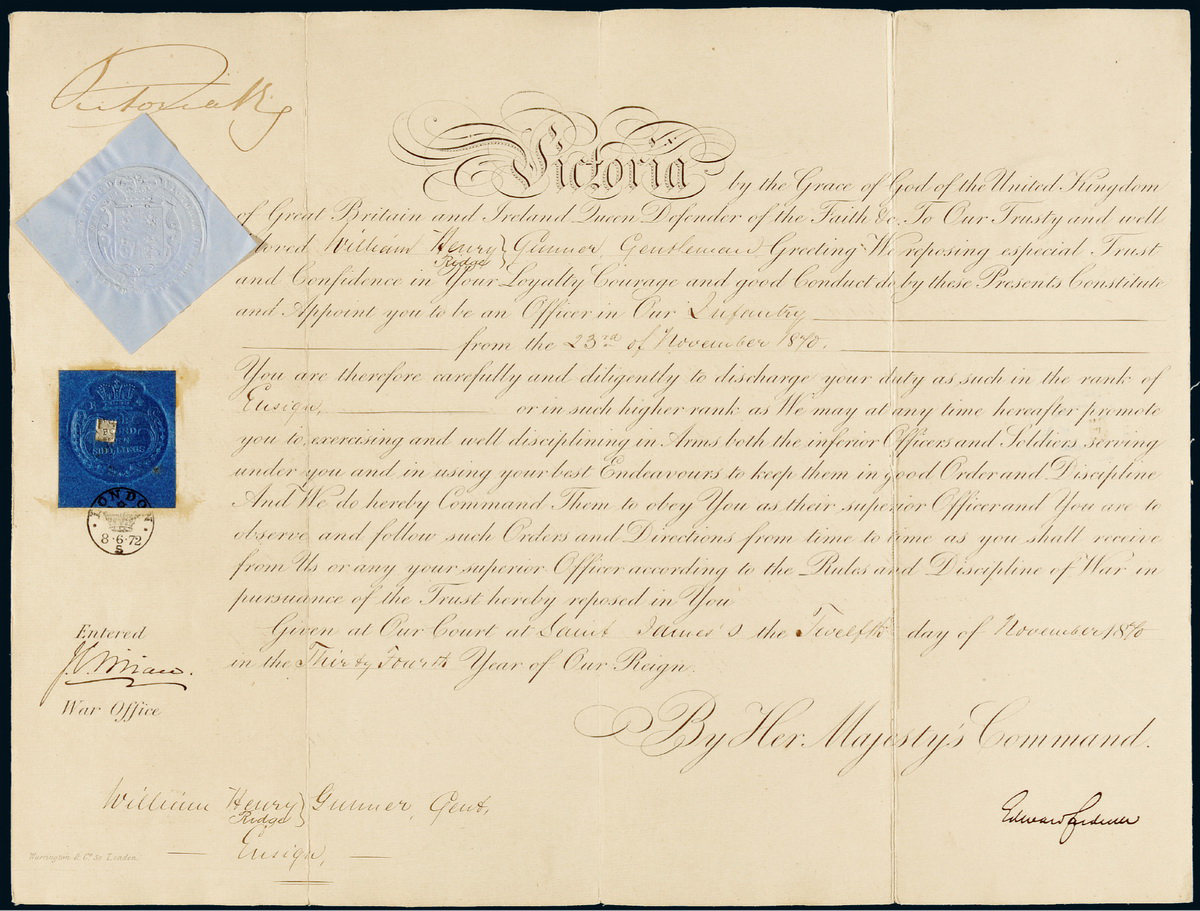 Victoria R
Victoria by the Grace of God of the United Kingdom
of Great Britain and Ireland Queen Defender of the Faith &c. To Our Trusty and well
loved William Henry Ridge } Gunner, Gentleman Greeting We reposing especial Trust
and Confidence in Your Loyalty Courage and good Conduct do by these Presents Constitute
and Appoint you to be an Officer in Our Infantry
from the 23rd of November 1870.
You are therefore carefully and diligently to discharge your duty as such in the rank of
Ensign, or in such higher rank as We may at any time hereafter promote
you to, exercising and well disciplining in Arms both the inferior Officers and Soldiers serving
under you and in using your best Endeavours to keep them in good Order and Discipline
And We do hereby Command Them to obey You as their superior Officer and You are to
observe and follow such Orders and Directions from time to time as you shall receive
from Us or any your superior Officer according to the Rules and Discipline of War in
pursuance of the Trust hereby reposed in You
Given at Our Court at Saint James's the Twelfth day of November 1870
in the Thirty Fourth Year of Our Reign.
By Her Majesty's Command.
SHILLINGS
LONDON
8·6·72
S
Entered
War Office
William Henry Ridge } Gunner, Gent,
Ensign,
Edward
Warrington & Co. London.